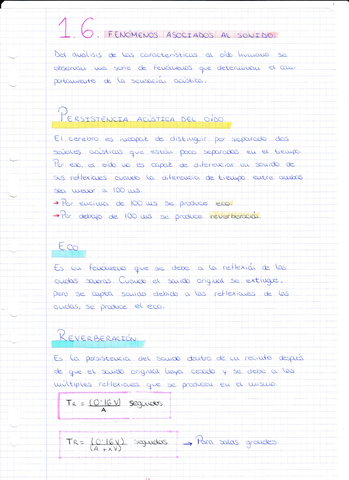 1.6. FENÓMENOS ASOCIADOS AL SONIDO
Del análisis de las características al oído humano se
observan una serie de fenómenos que determinan el com-
portamiento de la sensación acústica.
PERSISTENCIA ACÚSTICA DEL OÍDO
El cerebro es incapaz de distinguir por separado dos
señales acústicas que están poco separadas en el tiempo.
Por eso, el oído no es capaz de diferenciar un sonido de
sus reflexiones cuando la diferencia de tiempo entre ambas
sea menor a 100 ms.
→ Por encima de 100 ms se produce eco.
→ Por debajo de 100 ms se produce reverberación.
ECO
Es un fenómeno que se debe a la reflexión de las
ondas sonoras. Cuando el sonido original se extingue,
pero se capta sonido debido a las reflexiones de las
ondas, se produce el eco.
REVERBERACIÓN
Es la persistencia del sonido dentro de un recinto después
de que el sonido original haya cesado y se debe a las
múltiples reflexiones que se producen en el mismo.
TR = (0.16 V) / A segundos.
TR = (0.16 V) / (A + xV) segundos → Para salas grandes.